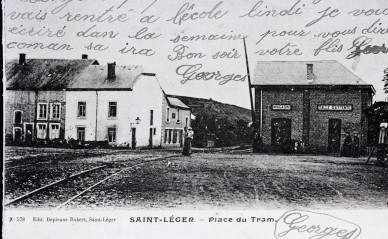 vais rentré a l'école lindi je vous
écriré dan la semaine pour vous dire
coman sa ira Bon soir votre fils
Georges
MAGASIN SALLE D'ATTENTE
№ 578 Edit. Depienne Robert, Saint-Léger SAINT-LÉGER. — Place du Tram.
Georges